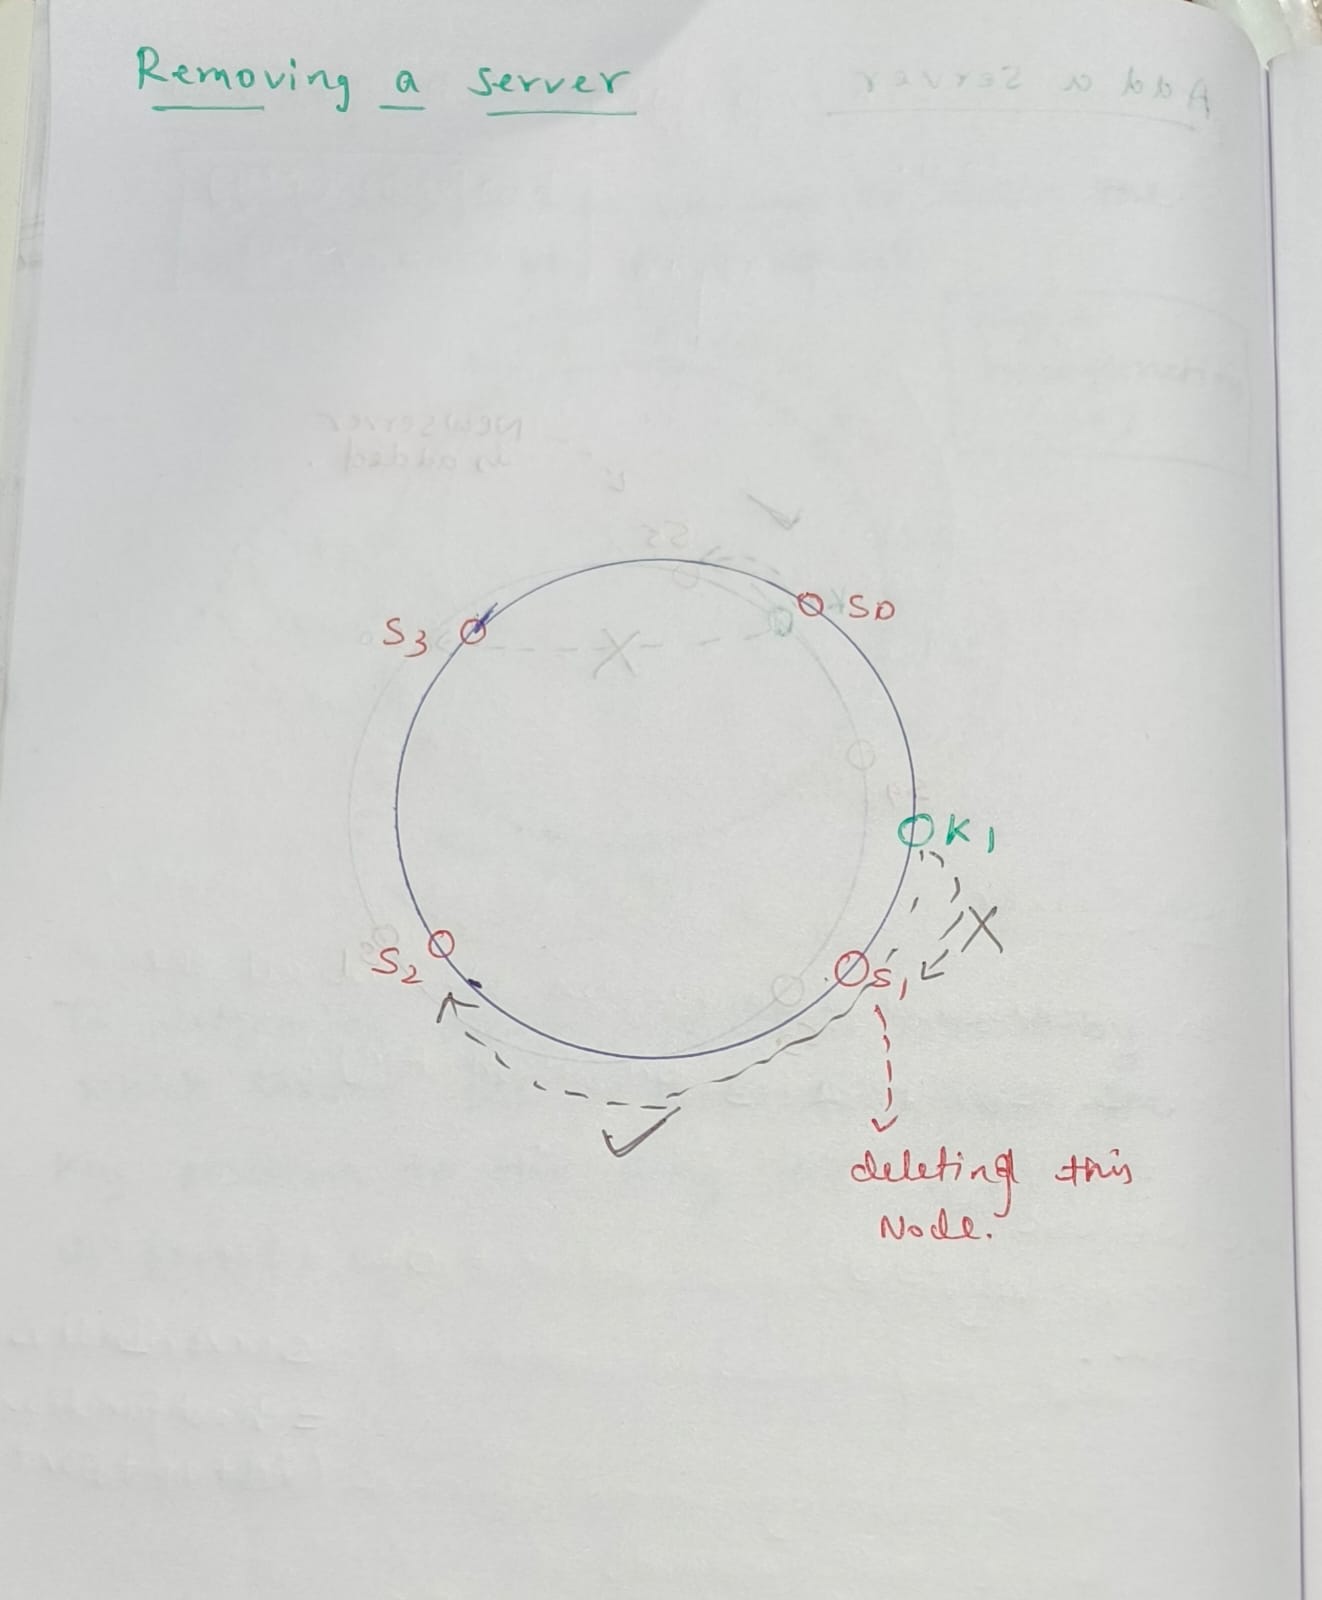 Removing a server
S0
S3
K1
S2
S1
deleting this
Node.